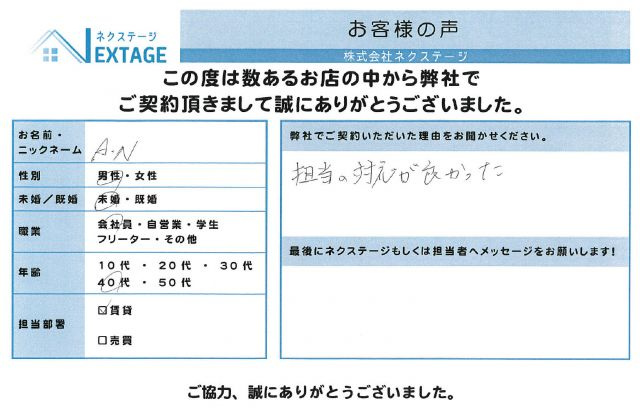 ネクステージ
NEXTAGE
お客様の声
株式会社ネクステージ
この度は数あるお店の中から弊社で
ご契約頂きまして誠にありがとうございました。
お名前・
ニックネーム
A.N
性別
男性・女性
未婚／既婚
未婚・既婚
職業
会社員・自営業・学生
フリーター・その他
年齢
10代 ・ 20代 ・ 30代
40代 ・ 50代
担当部署
☑賃貸
□売買
弊社でご契約いただいた理由をお聞かせください。
担当の対応が良かった
最後にネクステージもしくは担当者へメッセージをお願いします!
ご協力、誠にありがとうございました。